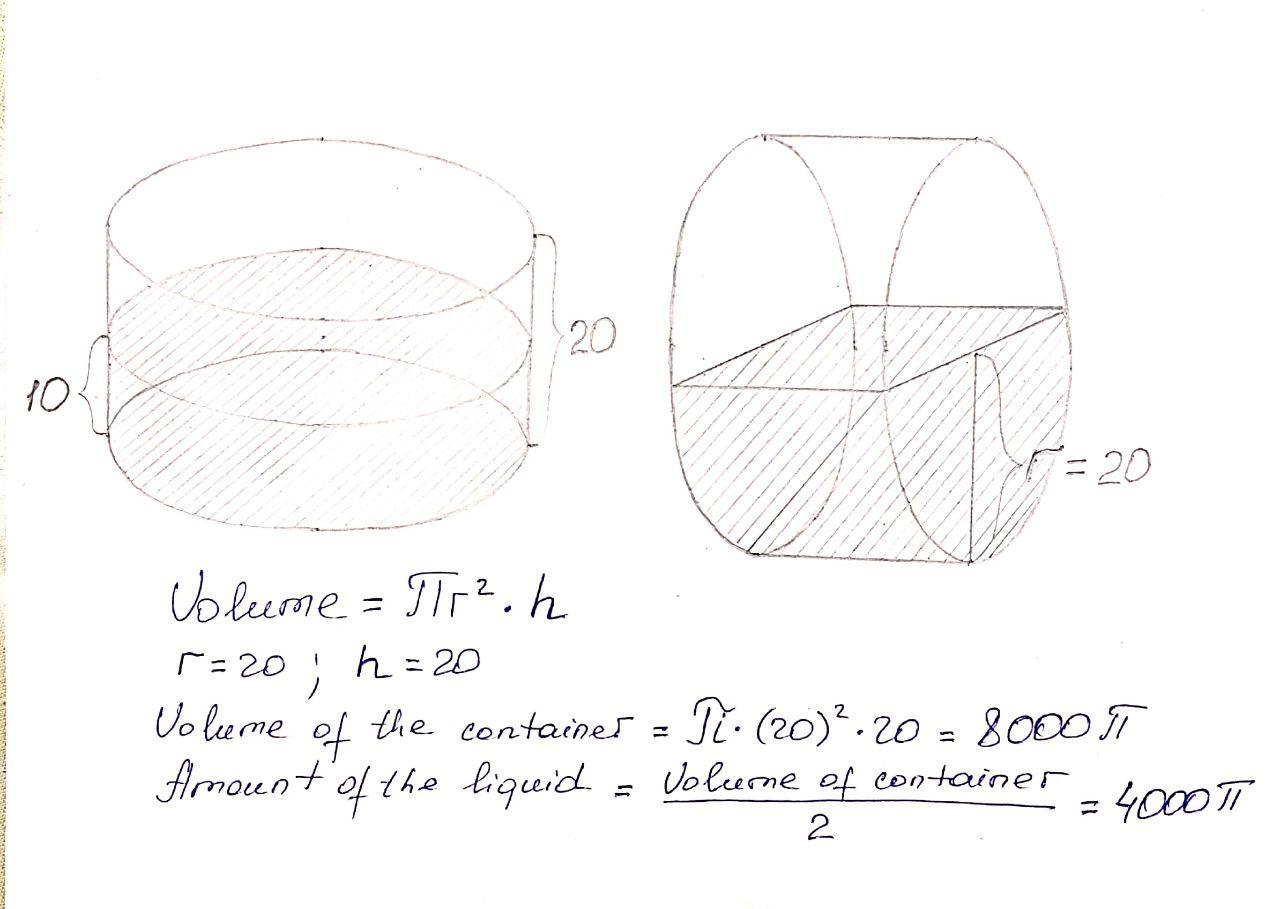 10
20
r = 20
Volume = πr² · h
r = 20 ; h = 20
Volume of the container = π · (20)² · 20 = 8000 π
Amount of the liquid = Volume of container / 2 = 4000 π